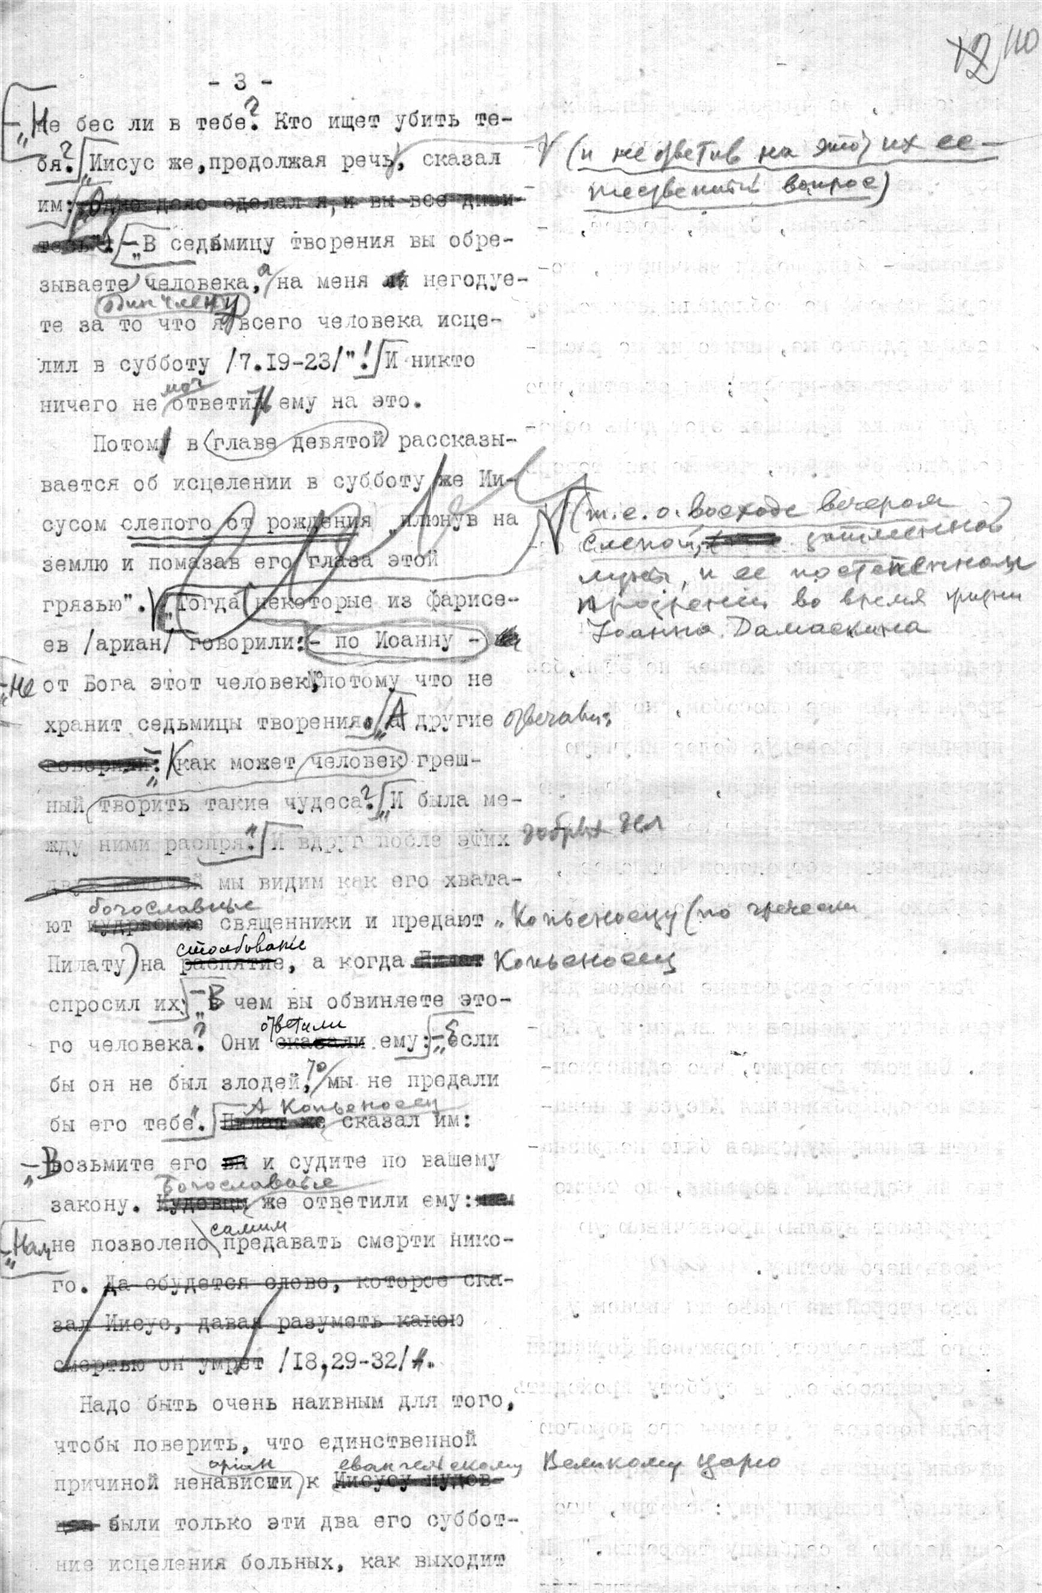 12 110
- 3 -
Не бес ли в тебе? Кто ищет убить те-
бя? Иисус же, продолжая речь, сказал
(и не ответив на этот их ес-
тественный вопрос)
им: Одно дело сделал я, и вы все диви-
тесь. - „В седьмицу творения вы обре-
зываете человека, а на меня негодуе-
один член у
те за то что я всего человека исце-
лил в субботу /7.19-23/"! И никто
мог
ничего не ответить ему на это.
Потом в главе девятой рассказы-
вается об исцелении в субботу же Ии-
сусом слепого от рождения плюнув на
землю и помазав его глаза этой
грязью".
(т.е. о восходе вечером
слепой, затменной
луны, и ее постепенном
прозрении во время жизни
Иоанна Дамаскина
„Тогда некоторые из фарисе-
ев /ариан/ говорили: - по Иоанну -
- „Не
от Бога этот человек, потому что не
хранит седьмицы творения. „А другие отвечали:
говорили: „как может человек греш-
ный творить такие чудеса? „И была ме-
жду ними распря." И вдруг после этих добрых дел
мы видим как его хвата-
богославцые
ют иудейские священники и предают „Копьеносцу (по гречески
столбование
Пилату) на распятие, а когда Пилат Копьеносец
спросил их: - „В чем вы обвиняете это-
ответили
го человека? Они сказали ему: - „Если
то
бы он не был злодей, мы не предали
А Копьеносец
бы его тебе". Пилат же сказал им:
- „Возьмите его вы и судите по вашему
Богославцые
закону. Иудовцы же ответили ему: нам
самим
- „Нам не позволено предавать смерти нико-
го. Да сбудется слово, которое ска-
зал Иисус, давая разуметь какою
смертью он умрет /18,29-32/.
Надо быть очень наивным для того,
чтобы поверить, что единственной
ариан евангельскому Великому царю
причиной ненависти к Иисусу иудов-
были только эти два его суббот-
ние исцеления больных, как выходит